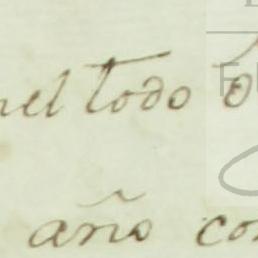 el todo ó
año co